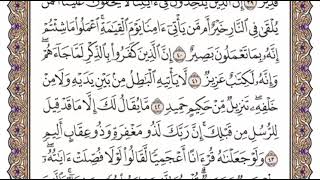 قَدِيرٌ ٣٩ إِنَّ ٱلَّذِينَ يُلْحِدُونَ فِىٓ ءَايَٰتِنَا لَا يَخْفَوْنَ عَلَيْنَآ أَفَمَن
يُلْقَىٰ فِى ٱلنَّارِ خَيْرٌ أَم مَّن يَأْتِىٓ ءَامِنًا يَوْمَ ٱلْقِيَٰمَةِ ٱعْمَلُوا۟ مَا شِئْتُمْ
إِنَّهُۥ بِمَا تَعْمَلُونَ بَصِيرٌ ٤٠ إِنَّ ٱلَّذِينَ كَفَرُوا۟ بِٱلذِّكْرِ لَمَّا جَآءَهُمْ
وَإِنَّهُۥ لَكِتَٰبٌ عَزِيزٌ ٤١ لَّا يَأْتِيهِ ٱلْبَٰطِلُ مِنۢ بَيْنِ يَدَيْهِ وَلَا مِنْ
خَلْفِهِۦ تَنزِيلٌ مِّنْ حَكِيمٍ حَمِيدٍ ٤٢ مَّا يُقَالُ لَكَ إِلَّا مَا قَدْ قِيلَ
لِلرُّسُلِ مِن قَبْلِكَ إِنَّ رَبَّكَ لَذُو مَغْفِرَةٍ وَذُو عِقَابٍ أَلِيمٍ
٤٣ وَلَوْ جَعَلْنَٰهُ قُرْءَانًا أَعْجَمِيًّا لَّقَالُوا۟ لَوْلَا فُصِّلَتْ ءَايَٰتُهُۥٓ